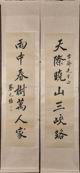 天際曉山三峽路
雨中春樹萬人家